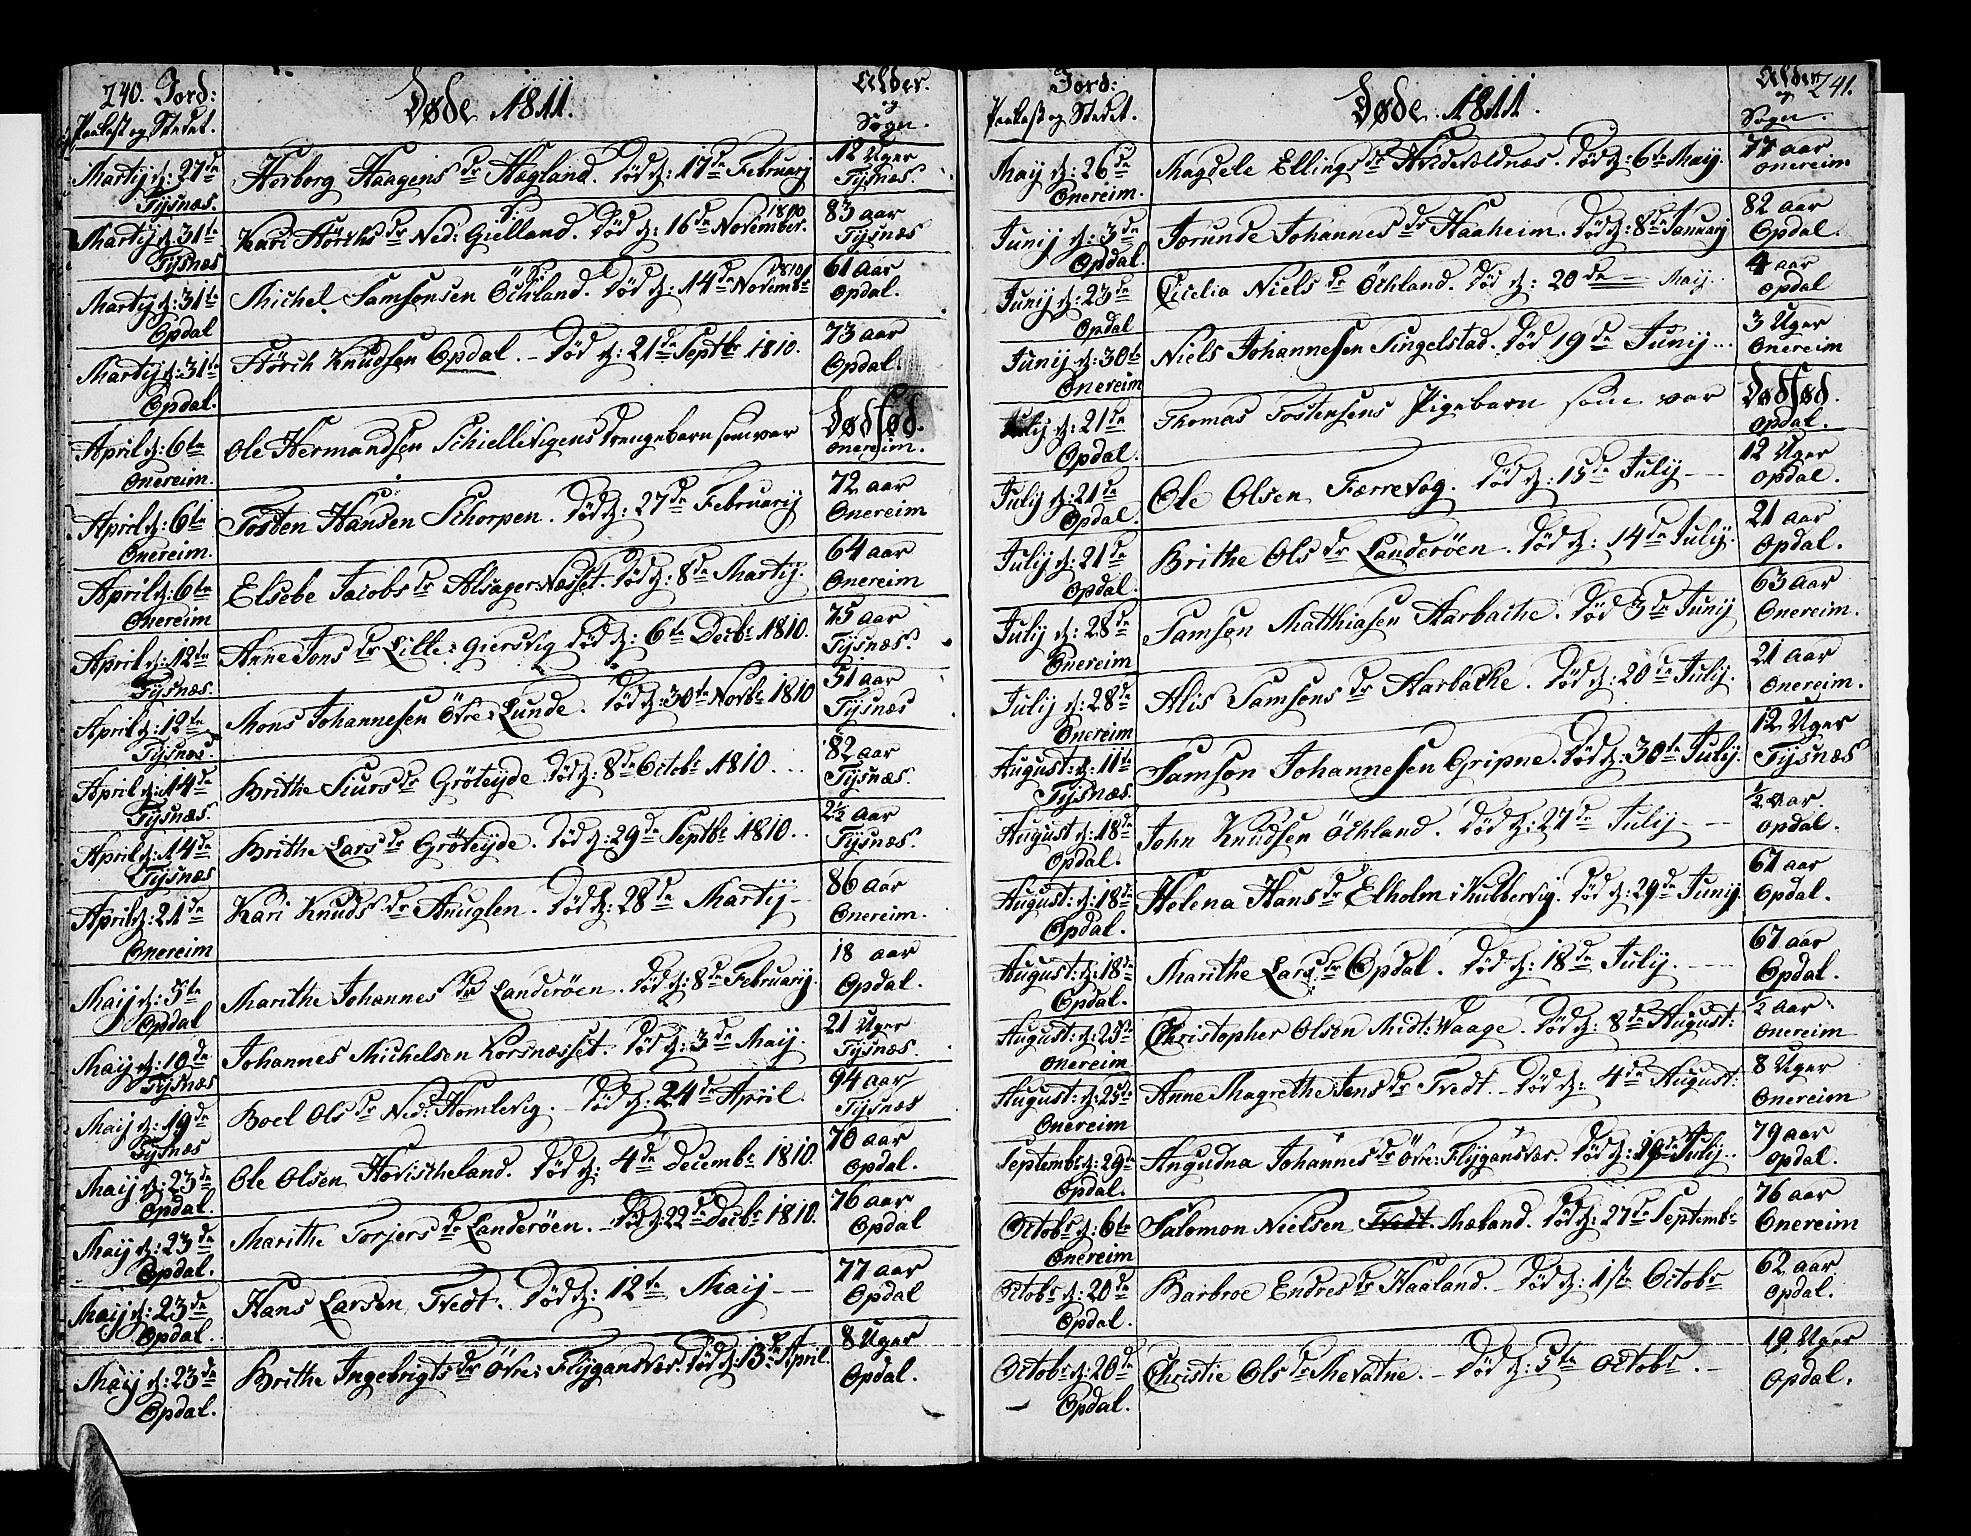 240. Jord:
Paakast og Stedet.
Døde 1811.
Alder.
og
Sogn.
Martij d: 27de
Tysnæs.
Herborg Haagens dr Hagland. Død d: 17de Februarij
12 Uger
Tysnæs.
Martij d: 31te
Tysnæs
Kari Størchs dr Ned: Gielland. Død d: 16de November. 1810
83 aar
Tysnæs
Martij d: 31te
Opdal
Michel Samsonsen Öchland. Død d: 14de Novembr 1810
61 aar
Opdal.
Martij d: 31te
Opdal.
Størch Knudsen Opdal. – Død d: 21de Septbr 1810.
73 aar
Opdal.
April d: 6te
Onereim.
Ole Hermandsen Schiellevigens Drengebarn som var
Dødfød.
Onereim.
April d: 6te
Onereim.
Tosten Hansen Schorpen. Død d: 27de Februarij
72 aar
Onereim
April d: 6te
Onereim
Elsebe Jacobs dr Alsager:Næsset. Død d: 8de Martij.
64 aar
Onereim
April d: 12te
Tysnæs.
Anne Jons dr Lille: Giersvig Død d: 6te Decbr 1810.
75 aar
Tysnæs.
April d: 12te
Tysnæs
Mons Johannesen Öfre: Lunde. Død d: 30te Novbr 1810
51 aar
Tysnæs
April d: 14de
Tysnæs.
Brithe Siurs dr Gröteyde. Død d: 8de Octobr 1810...
82 aar
Tysnæs.
April d: 14de
Tysnæs
Brithe Lars dr Gröteyde. Død d: 29de Septbr 1810..
2½ aar
Tysnæs.
April d: 21de
Onereim
Kari Knuds dr Anuglen. Død d: 28de Martij –
86 aar
Onereim.
Maij d: 5te
Opdal
Marithe Johannes dr Landeröen. Død d: 8de Februarij.
18 aar
Opdal.
Maij d: 10de
Tysnæs
Johannes Michelsen Korsnæsset. Død d: 3de Maij.
21 Uger
Tysnæs.
Maij d: 19de
Tysnæs
Boel Ols dr Ned: Homlevig. – Død d: 24de April.
94 aar
Tysnæs
Maij d: 23de
Opdal.
Ole Olsen Hovischeland. Død d: 4de Decembr 1810.
70 aar
Opdal.
Maij d: 23de
Opdal.
Marithe Torjers dr Landeröen. – Død d: 22de Decbr 1810.
76 aar
Opdal
Maij d: 23de
Opdal.
Hans Larsen Tvedt. Død d: 12te Maij – –
77 aar
Opdal
Maij d: 23de
Opdal.
Brithe Ingebrigts dr Öfre: Flygansvær. Død d: 13de April.
8 Uger
Opdal.
Jord:
Paakast og Stedet.
Døde 1811.
Alder
og
Sogn.
241.
Maij d: 26de
Onereim.
Magdele Ellings dr Hvidevoldnæs. Død d: 6te Maij.
77 aar
Onereim
Junij d: 3de
Opdal.
Jorunde Johannes dr Haaheim. Død d: 8de Januarij
82 aar
Opdal.
Junij d: 23de
Opdal
Cicelia Niels dr Öchland. Død d: 20de – Maij..
4 aar
Opdal
Junij d: 30te
Onereim
Niels Johannesen Singelstad. Død 19de Junij...
3 Uger
Onereim
Julij d: 21de
Opdal.
Thomas Tostensens Pigebarn som var
Dødfød.
Opdal.
Julij d: 21de
Opdal.
Ole Olsen Færrevog. Død d: 15de Julij – –
12 Uger
Opdal.
Julij d: 21de
Opdal.
Brithe Ols dr Landeröen. Død d: 14de Julij.
21 aar
Opdal.
Julij d: 28de
Onereim
Samson Matthiasen Aarbache. Død 3de Junij
63 aar
Onereim.
Julij d: 28de
Onereim
Alis Samsons dr Aarbache. Død d: 20de Julij.
21 aar
Onereim.
August: d: 11te
Tysnæs.
Samson Johannesen Gripne. Død d: 30te Julij.
12 Uger
Tysnæs
August d: 18de
Opdal.
John Knudsen Öchland. Død d: 27de Julij – –
½ aar.
Opdal.
August: d: 18de
Opdal.
Helena Hans dr Elholm i Kubbervig. Død d: 29de Junij.
67 aar
Opdal.
August: d: 18de
Opdal.
Marithe Lars dr Opdal. Død d: 18de Julij. – –
67 aar
Opdal.
August: d: 25de
Onereim
Christopher Olsen Midt: Waage. Død d: 8de August:
½ aar.
Onereim
August: d: 25de
Onereim
Anne Magrethe Jens dr Tvedt. – Død d: 4de August:
8 Uger
Onereim
Septembr d: 29de
Opdal.
Angudna Johannes dr Öfre: Flygansvær. Død d: 19de Julij..
79 aar
Opdal.
Octobr d: 6te
Onereim
Salomon Nielsen Tvedt. Mæland. Død d: 27de Septembr
76 aar
Onereim
Octobr d: 20de
Opdal.
Barbroe Endres dr Haaland. – Død d: 1ste Octobr
62 aar
Opdal.
Octobr d: 20de
Opdal.
Christie Ols dr Mevatne. – Død d: 5te Octobr. –
19 Uger
Opdal.